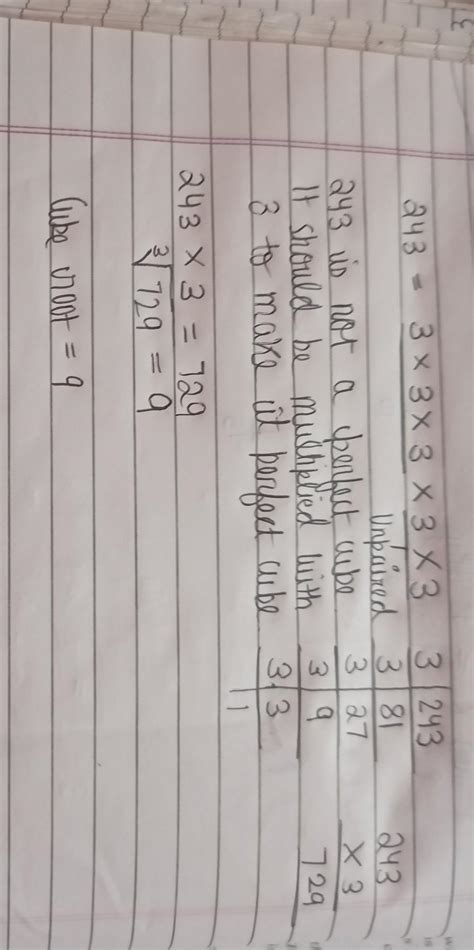 243 = 3 × 3 × 3 × 3 × 3
Unpaired
243 is not a perfect cube
It should be multiplied with
3 to make it perfect cube
243 × 3 = 729
∛729 = 9
Cube root = 9
3 | 243
3 | 81
3 | 27
3 | 9
3 | 3
1
243
× 3
729